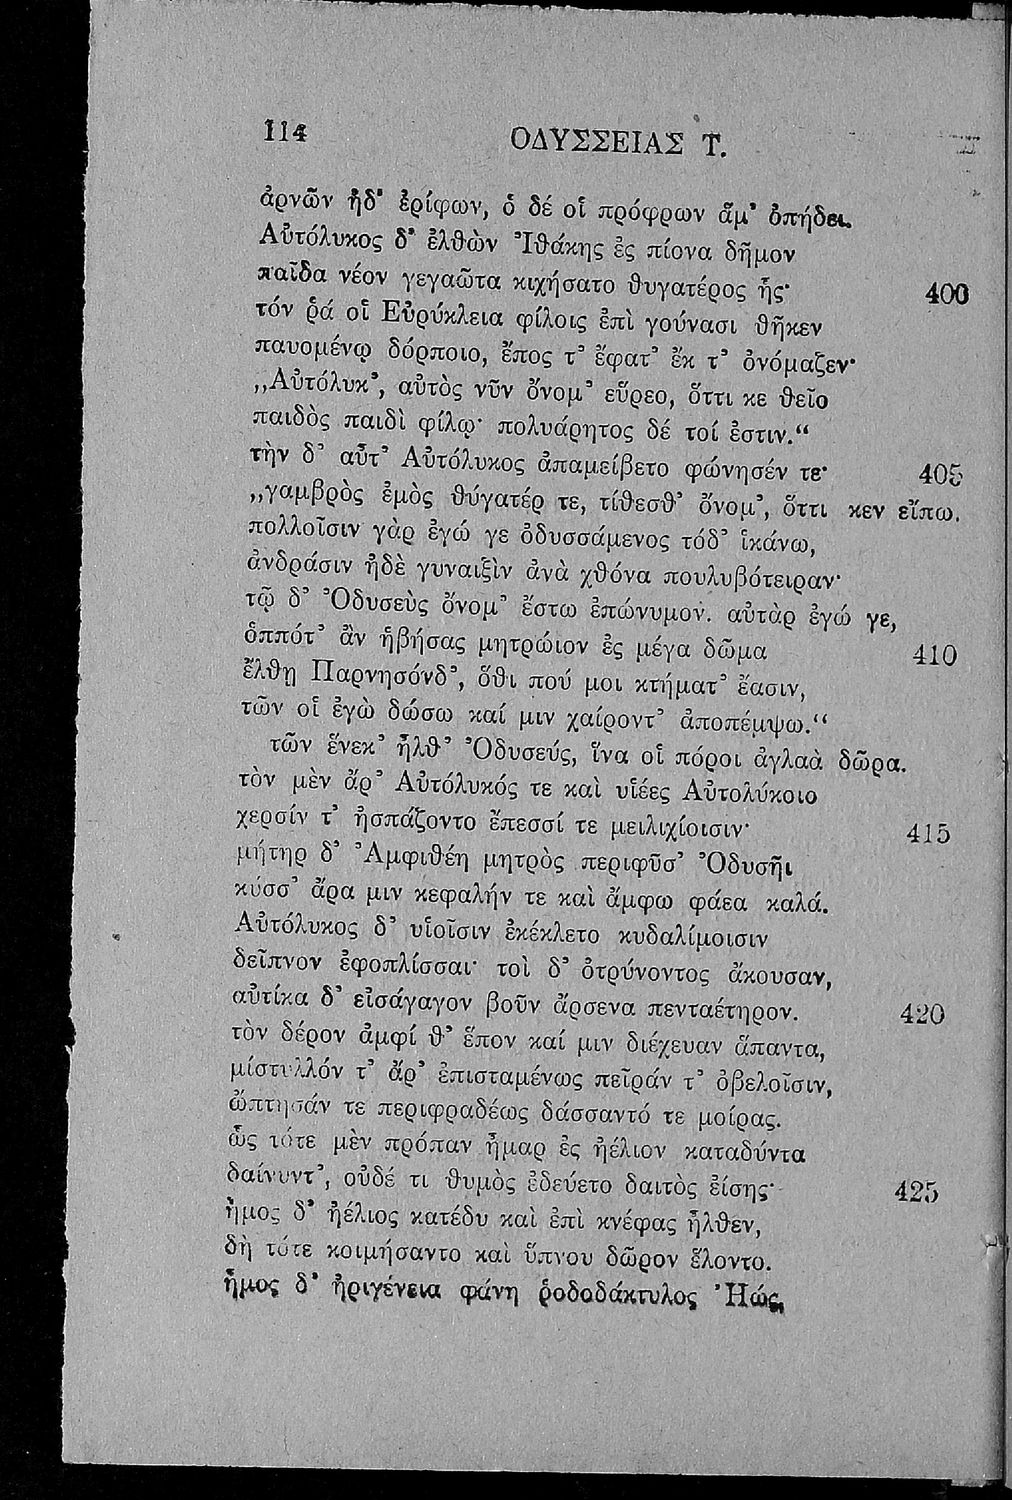 114 ΟΔΥΣΣΕΙΑΣ Τ.
ἀρνῶν ἠδ’ ἐρίφων, ὁ δέ οἱ πρόφρων ἅμ’ ὀπήδει.
Αὐτόλυκος δ’ ἐλθὼν Ἰθάκης ἐς πίονα δῆμον
παῖδα νέον γεγαῶτα κιχήσατο θυγατέρος ἧς· 400
τόν ῥά οἱ Εὐρύκλεια φίλοις ἐπὶ γούνασι θῆκεν
παυομένῳ δόρποιο, ἔπος τ’ ἔφατ’ ἔκ τ’ ὀνόμαζεν·
„Αὐτόλυκ’, αὐτὸς νῦν ὄνομ’ εὕρεο, ὅττι κε θεῖο
παιδὸς παιδὶ φίλῳ· πολυάρητος δέ τοί ἐστιν.“
τὴν δ’ αὖτ’ Αὐτόλυκος ἀπαμείβετο φώνησέν τε· 405
„γαμβρὸς ἐμὸς θύγατέρ τε, τίθεσθ’ ὄνομ’, ὅττι κεν εἴπω.
πολλοῖσιν γὰρ ἐγώ γε ὀδυσσάμενος τόδ’ ἱκάνω,
ἀνδράσιν ἠδὲ γυναιξὶν ἀνὰ χθόνα πουλυβότειραν·
τῷ δ’ Ὀδυσεὺς ὄνομ’ ἔστω ἐπώνυμον. αὐτὰρ ἐγώ γε,
ὁππότ’ ἂν ἡβήσας μητρώιον ἐς μέγα δῶμα 410
ἔλθῃ Παρνησόνδ’, ὅθι πού μοι κτήματ’ ἔασιν,
τῶν οἱ ἐγὼ δώσω καί μιν χαίροντ’ ἀποπέμψω.“
τῶν ἕνεκ’ ἦλθ’ Ὀδυσεύς, ἵνα οἱ πόροι ἀγλαὰ δῶρα.
τὸν μὲν ἄρ’ Αὐτόλυκός τε καὶ υἱέες Αὐτολύκοιο
χερσίν τ’ ἠσπάζοντο ἔπεσσί τε μειλιχίοισιν· 415
μήτηρ δ’ Ἀμφιθέη μητρὸς περιφῦσ’ Ὀδυσῆι
κύσσ’ ἄρα μιν κεφαλήν τε καὶ ἄμφω φάεα καλά.
Αὐτόλυκος δ’ υἱοῖσιν ἐκέκλετο κυδαλίμοισιν
δεῖπνον ἐφοπλίσσαι· τοὶ δ’ ὀτρύνοντος ἄκουσαν,
αὐτίκα δ’ εἰσάγαγον βοῦν ἄρσενα πενταέτηρον. 420
τὸν δέρον ἀμφί θ’ ἕπον καί μιν διέχευαν ἅπαντα,
μίστυλλόν τ’ ἄρ’ ἐπισταμένως πεῖράν τ’ ὀβελοῖσιν,
ὤπτησάν τε περιφραδέως δάσσαντό τε μοίρας.
ὣς τότε μὲν πρόπαν ἦμαρ ἐς ἠέλιον καταδύντα
δαίνυντ’, οὐδέ τι θυμὸς ἐδεύετο δαιτὸς ἐίσης· 425
ἦμος δ’ ἠέλιος κατέδυ καὶ ἐπὶ κνέφας ἦλθεν,
δὴ τότε κοιμήσαντο καὶ ὕπνου δῶρον ἕλοντο.
ἦμος δ’ ἠριγένεια φάνη ῥοδοδάκτυλος Ἠώς,